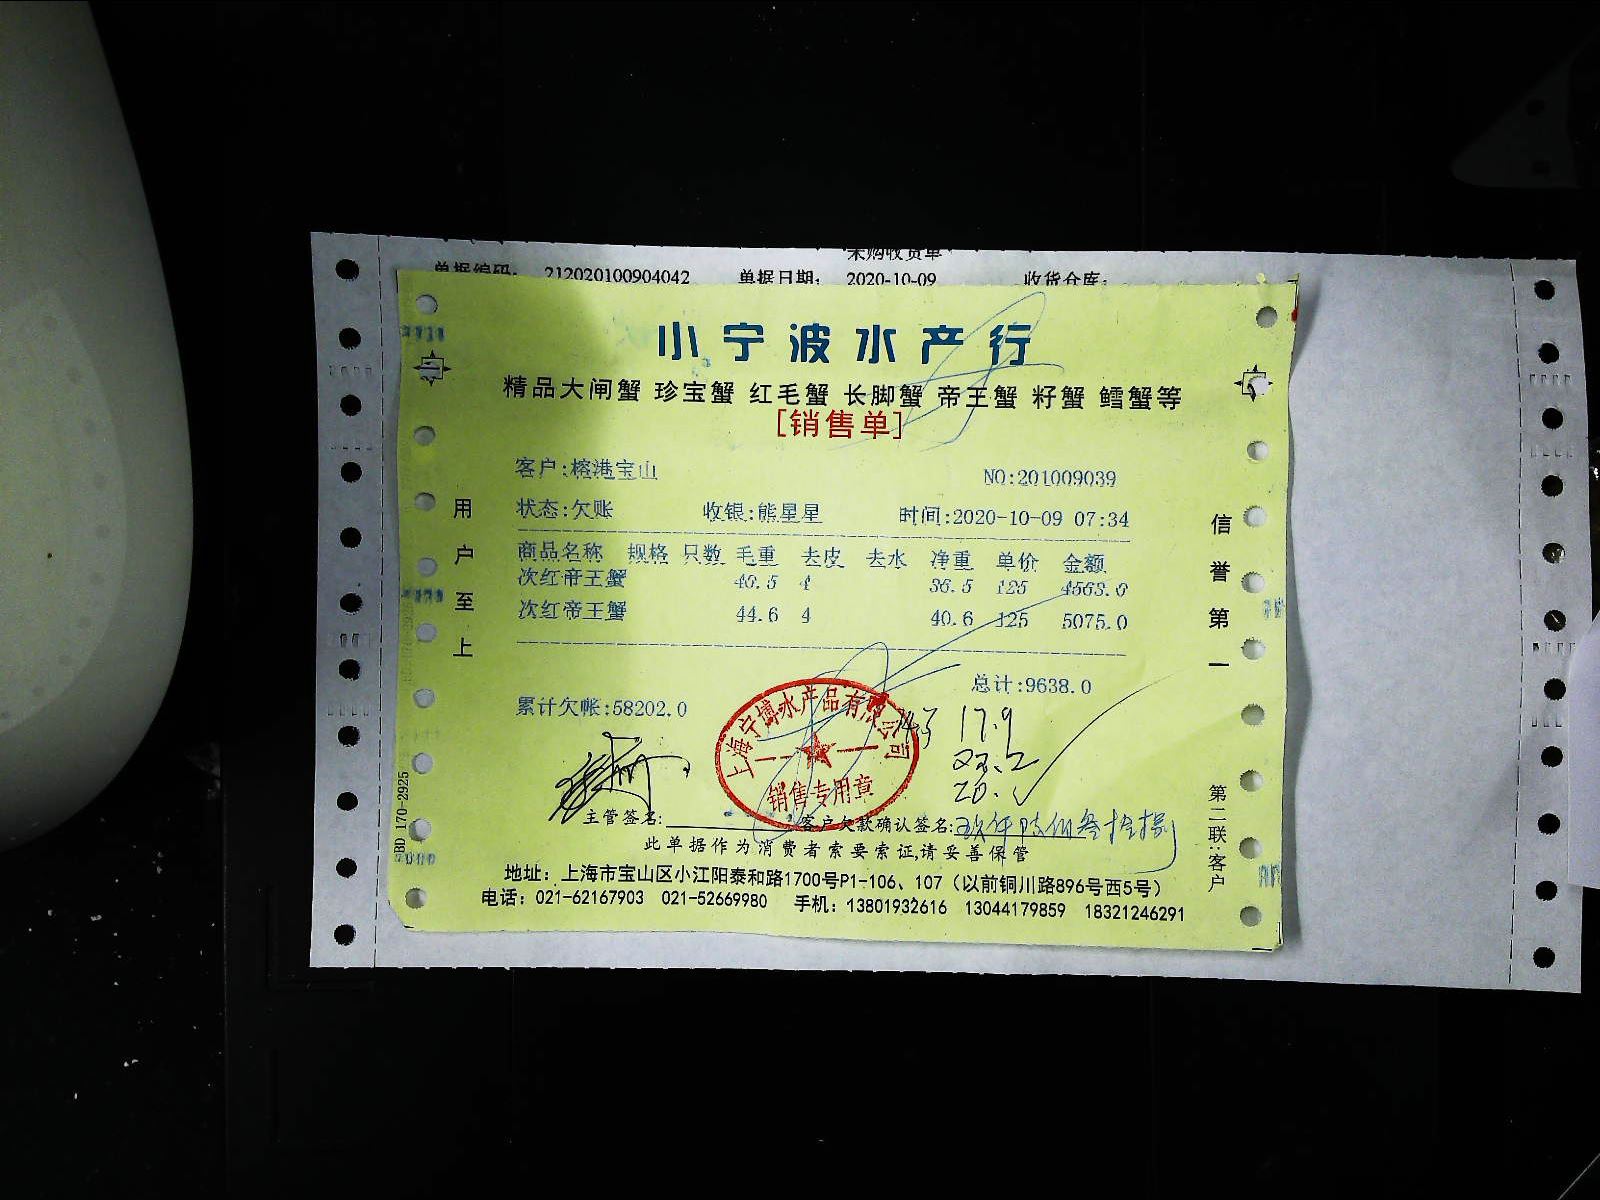 采购收货单
单据编码: 212020100904042 单据日期: 2020-10-09 收货仓库:
小宁波水产行
精品大闸蟹 珍宝蟹 红毛蟹 长脚蟹 帝王蟹 籽蟹 鳕蟹等
[销售单]
客户:榕港宝山 NO:201009039
状态:欠账 收银:熊星星 时间:2020-10-09 07:34
商品名称 规格 只数 毛重 去皮 去水 净重 单价 金额
次红帝王蟹 40.5 4 36.5 125 4563.0
次红帝王蟹 44.6 4 40.6 125 5075.0
总计:9638.0
累计欠帐:58202.0
17.9
22.2
20.
上海宁博水产品有限公司
销售专用章
主管签名: 客户欠款确认签名:玖仟陆佰叁拾捌
此单据作为消费者索要索证,请妥善保管
地址:上海市宝山区小江阳泰和路1700号P1-106、107(以前铜川路896号西5号)
电话:021-62167903 021-52669980 手机:13801932616 13044179859 18321246291
用户至上
信誉第一
第二联:客户
BD 170-2925